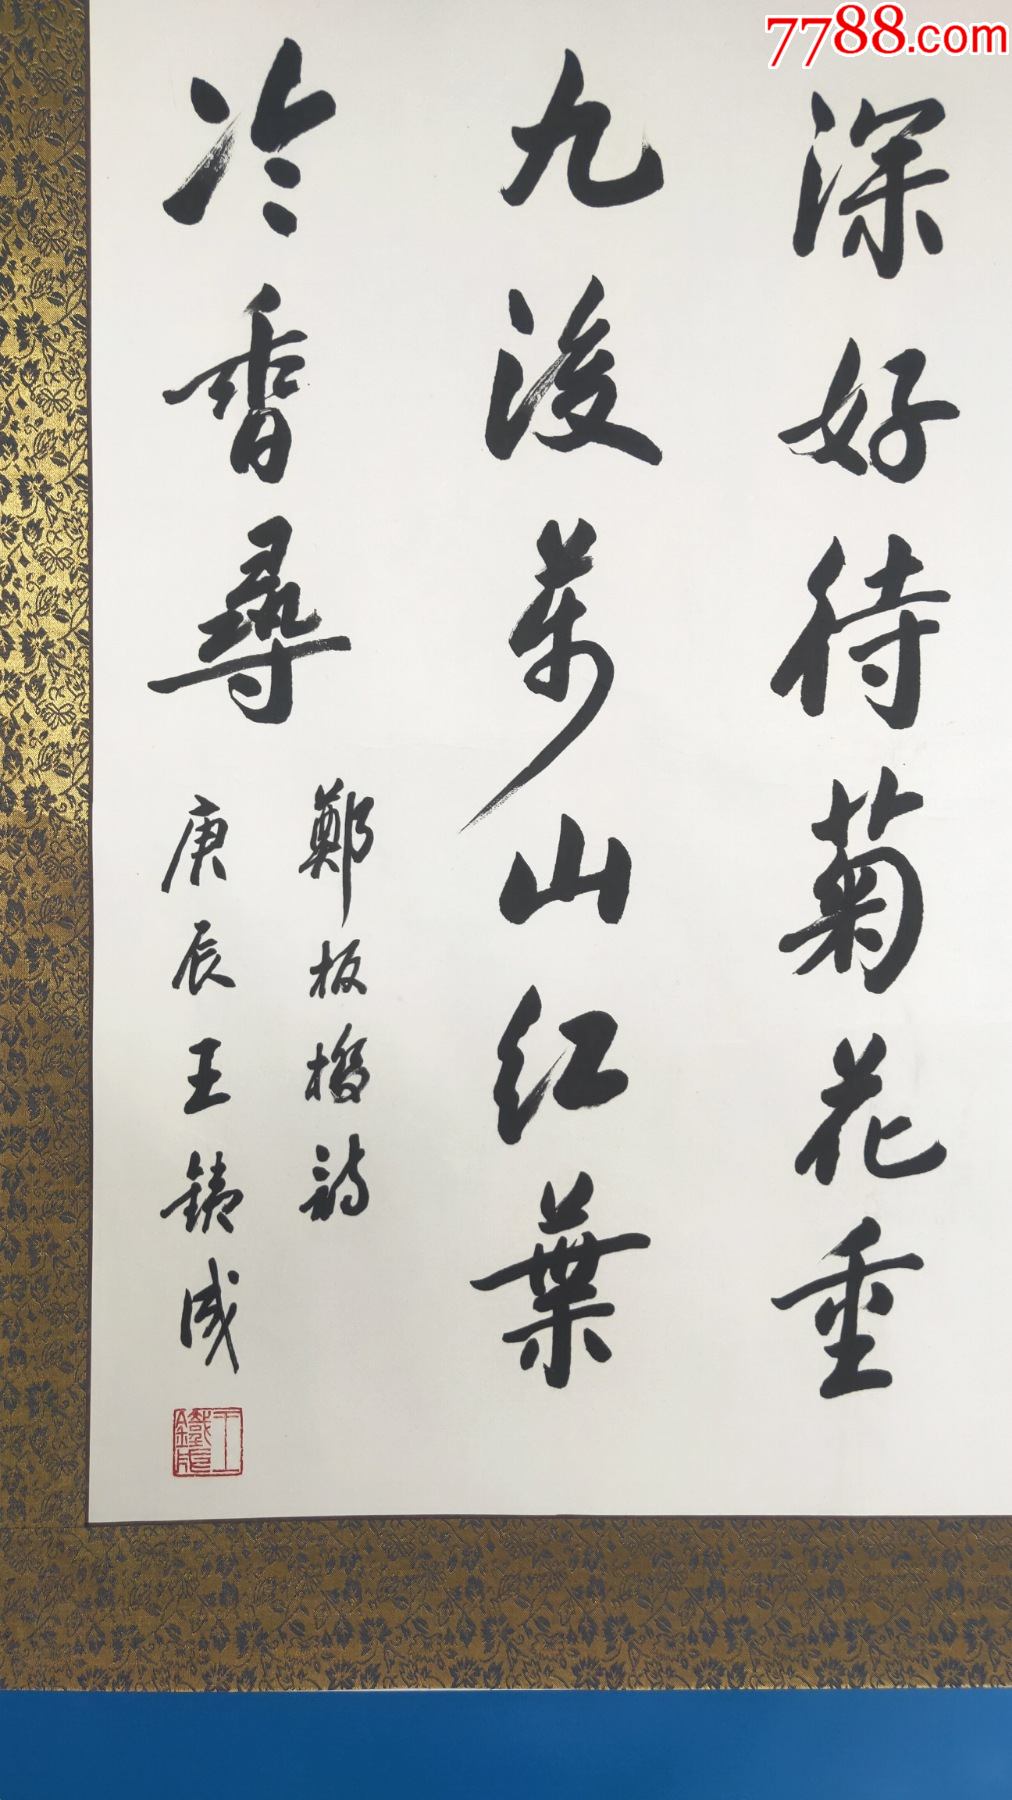 7788.com
深好待菊花重
九後萬山紅葉
冷香尋
鄭板橋詩
庚辰王鐵成
王鐵成